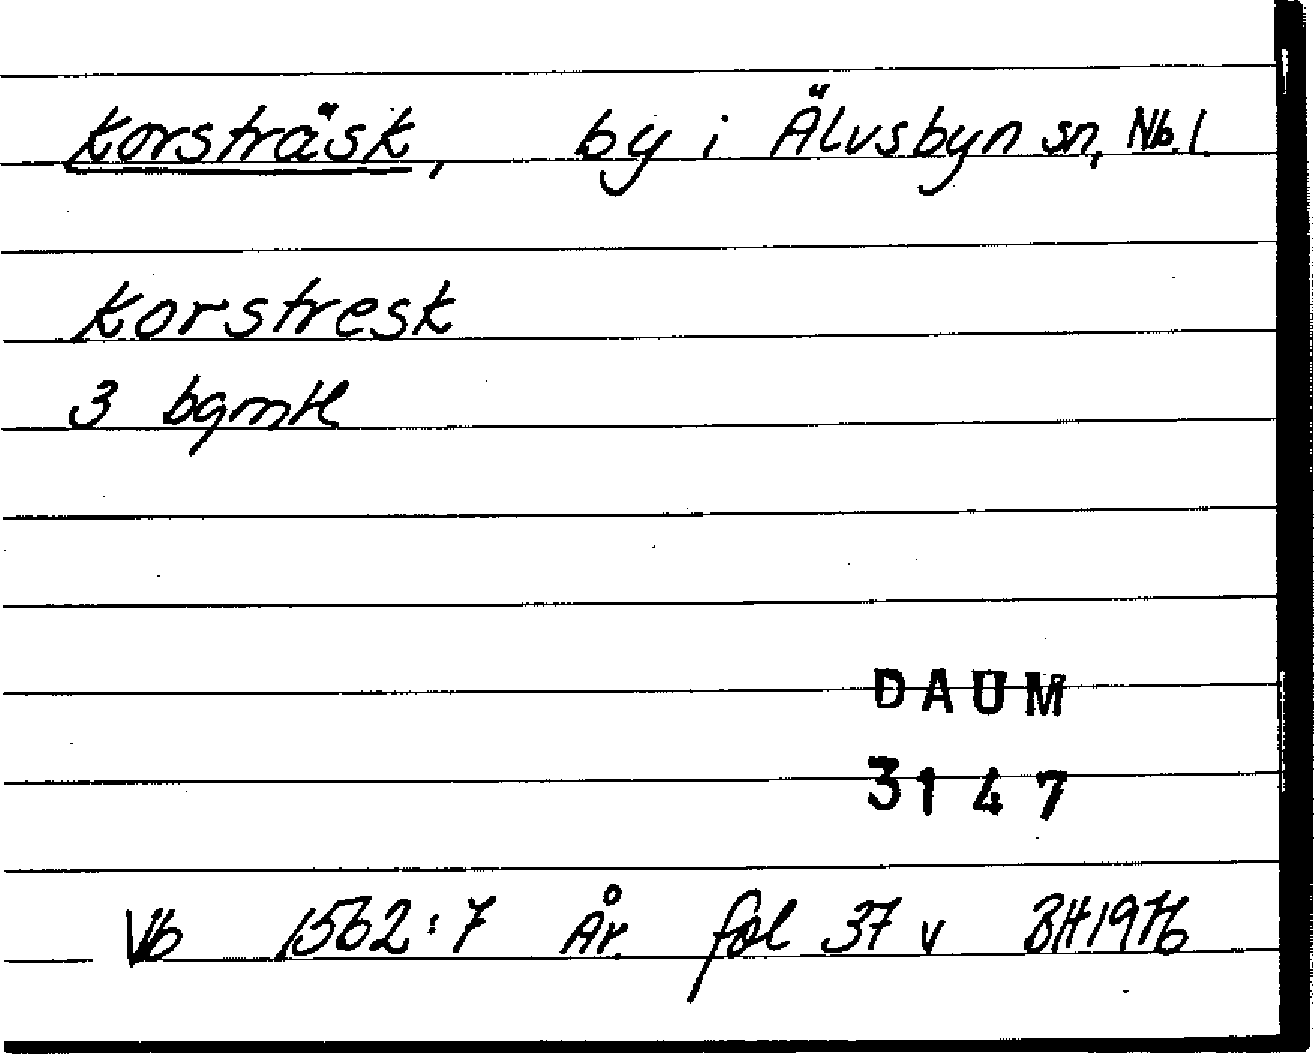 Korsträsk, by i Älvsbyn sn, Nb. l.
Korstresk
3 bgmtl
DAUM
3147
Vb 1562:7 År. fol 37 v BH 1976